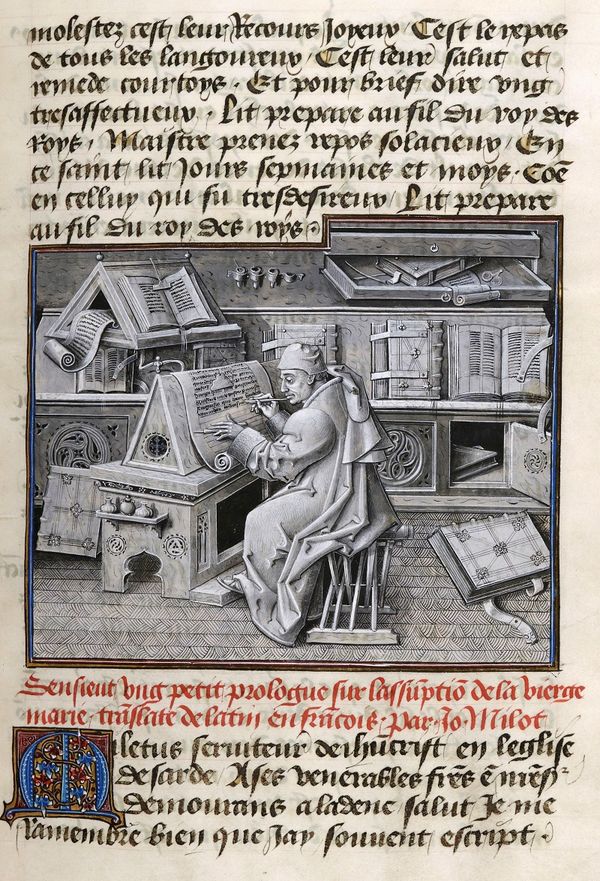 molestez cest leur Recours Joyeux / Cest le repas
de tous les langoureux / Cest leur salut et
remede courtoys / Et pour brief dire ung
tresaffectueux / Lit prepare au fil du roy des
Roys / Maistre prenez repos solacieux / En
ce saint lit Jours sepmaines et moys / Coē
en celluy qui fu tresdesireux / Lit prepare
au fil du roy des roys /
Sensient ung petit prologue sur lassūptiō de la vierge
marie / trāslate de latin en frācois / par / Jo / Milot
Miletus seruiteur de ihūcrist en leglise
de sarde A ses venerables frēs
demourans a ladence salut Je me
Ramembre bien que Jay souuent escript /